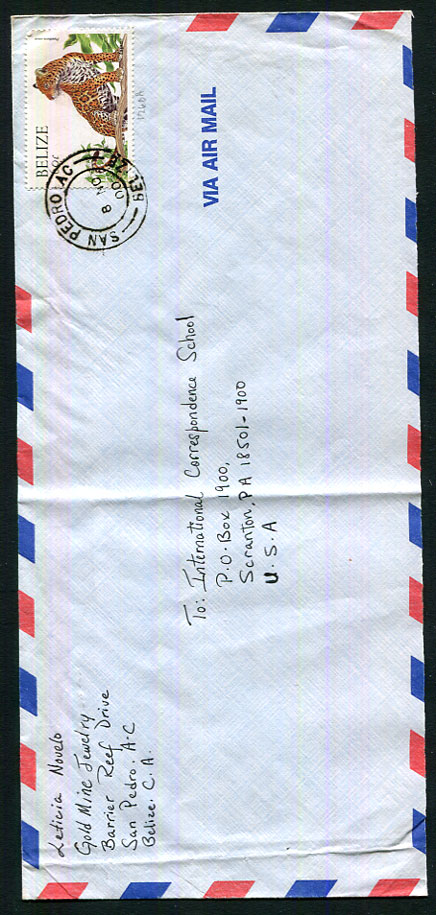 Leticia Novelo
Gold Mine Jewelry
Barrier Reef Drive
San Pedro. A.C
Belize. C.A.
BELIZE
SAN PEDRO AC
BELIZE
8 NO
00
VIA AIR MAIL
To: International Correspondence School
P.O. Box 1900,
Scranton, PA 18501-1900
U.S.A